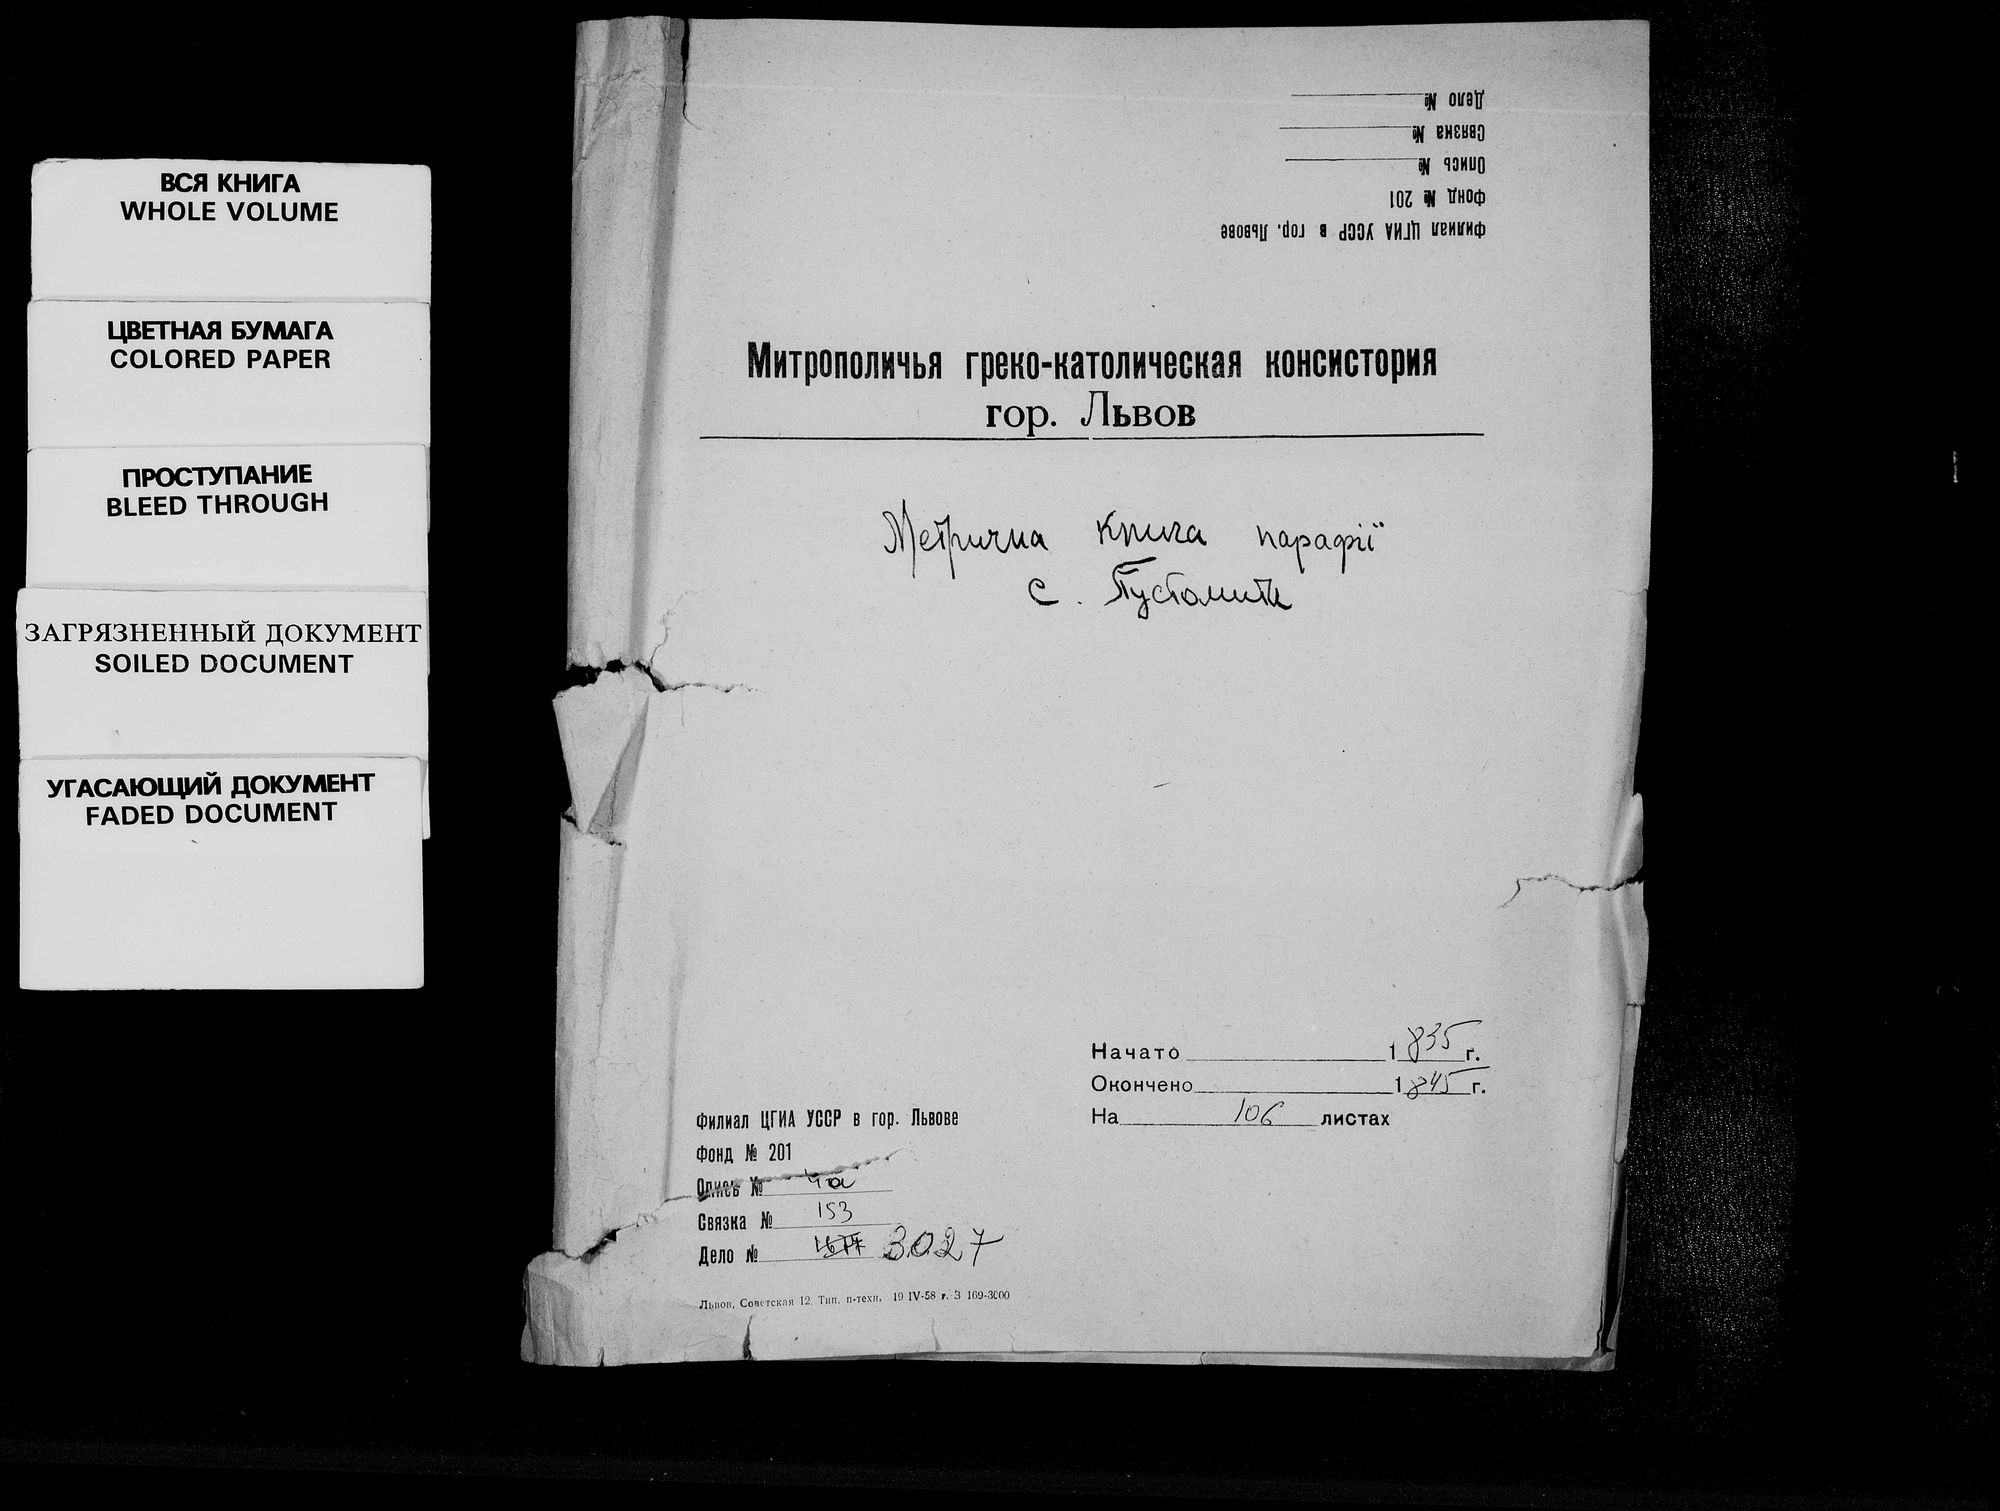 ВСЯ КНИГА
WHOLE VOLUME
ЦВЕТНАЯ БУМАГА
COLORED PAPER
ПРОСТУПАНИЕ
BLEED THROUGH
ЗАГРЯЗНЕННЫЙ ДОКУМЕНТ
SOILED DOCUMENT
УГАСАЮЩИЙ ДОКУМЕНТ
FADED DOCUMENT
Филиал ЦГИА УССР в гор. Львове
Фонд № 201
Опись №
Связка №
Дело №
Митрополичья греко-католическая консистория
гор. Львов
Метрична книга парафії
с. Пустомити
Начато 1835 г.
Окончено 1845 г.
На 106 листах
Филиал ЦГИА УССР в гор. Львове
Фонд № 201
Опись № 4а
Связка № 153
Дело № 3027
Львов, Советская 12. Тип. п-техн. 19 IV-58 г. З 169-3000